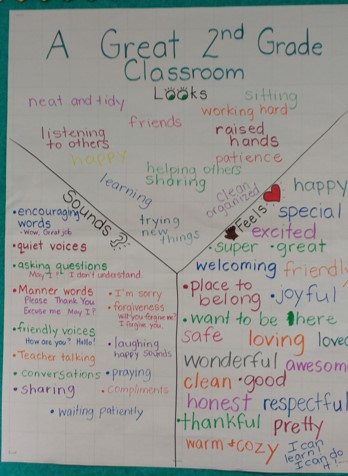 A Great 2nd Grade
Classroom
Looks
neat and tidy
sitting
working hard
friends
listening
to others
raised
hands
happy
patience
helping others
sharing
learning
clean
organized
trying
new
things
Sounds
• encouraging
words
- Wow, Great job
• quiet voices
• asking questions
May I ? I don't understand.
• Manner words
Please Thank You
Excuse me May I?
• friendly voices
How are you? Hello!
• Teacher talking
• conversations
• sharing
• I'm sorry
• forgiveness
will you forgive me?
I forgive you.
• laughing
happy sounds
• praying
• compliments
• waiting patiently
Feels
happy
special
excited
• super • great
welcoming friendly
• place to
belong • joyful
• want to be there
safe loving love
wonderful awesom
clean • good
honest respectful
• thankful pretty
warm + cozy
I can
learn
I can do
it